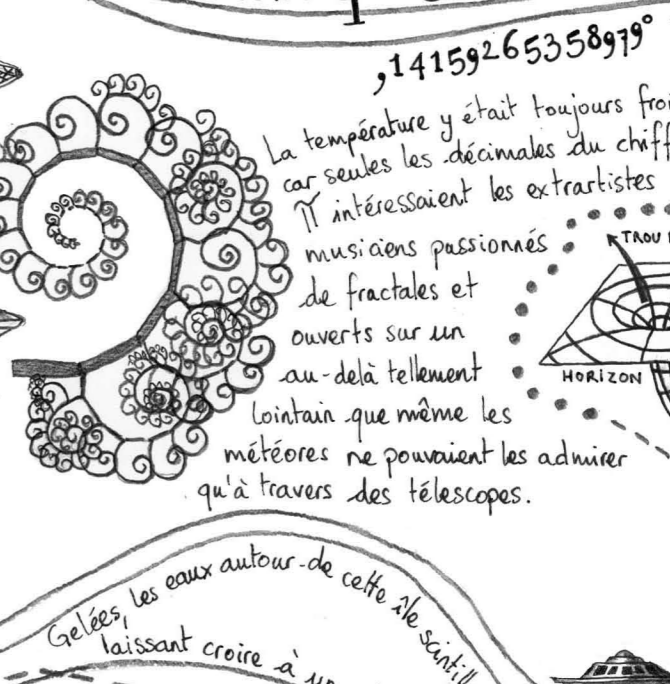 ,14159265358979°
La température y était toujours froi
car seules les décimales du chiff
π intéressaient les extrartistes
musiciens passionnés
de fractales et
ouverts sur un
au-delà tellement
lointain que même les
météores ne pouvaient les admirer
qu'à travers des télescopes.
TROU
HORIZON
Gelées, les eaux autour de cette île scintill
laissant croire à un